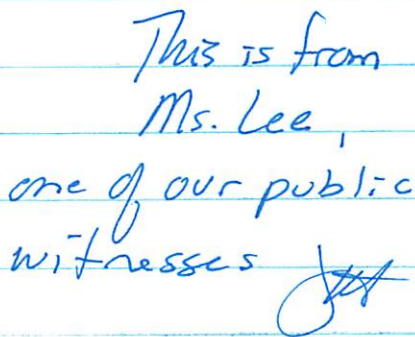 This is from
Ms. Lee,
one of our public
witnesses